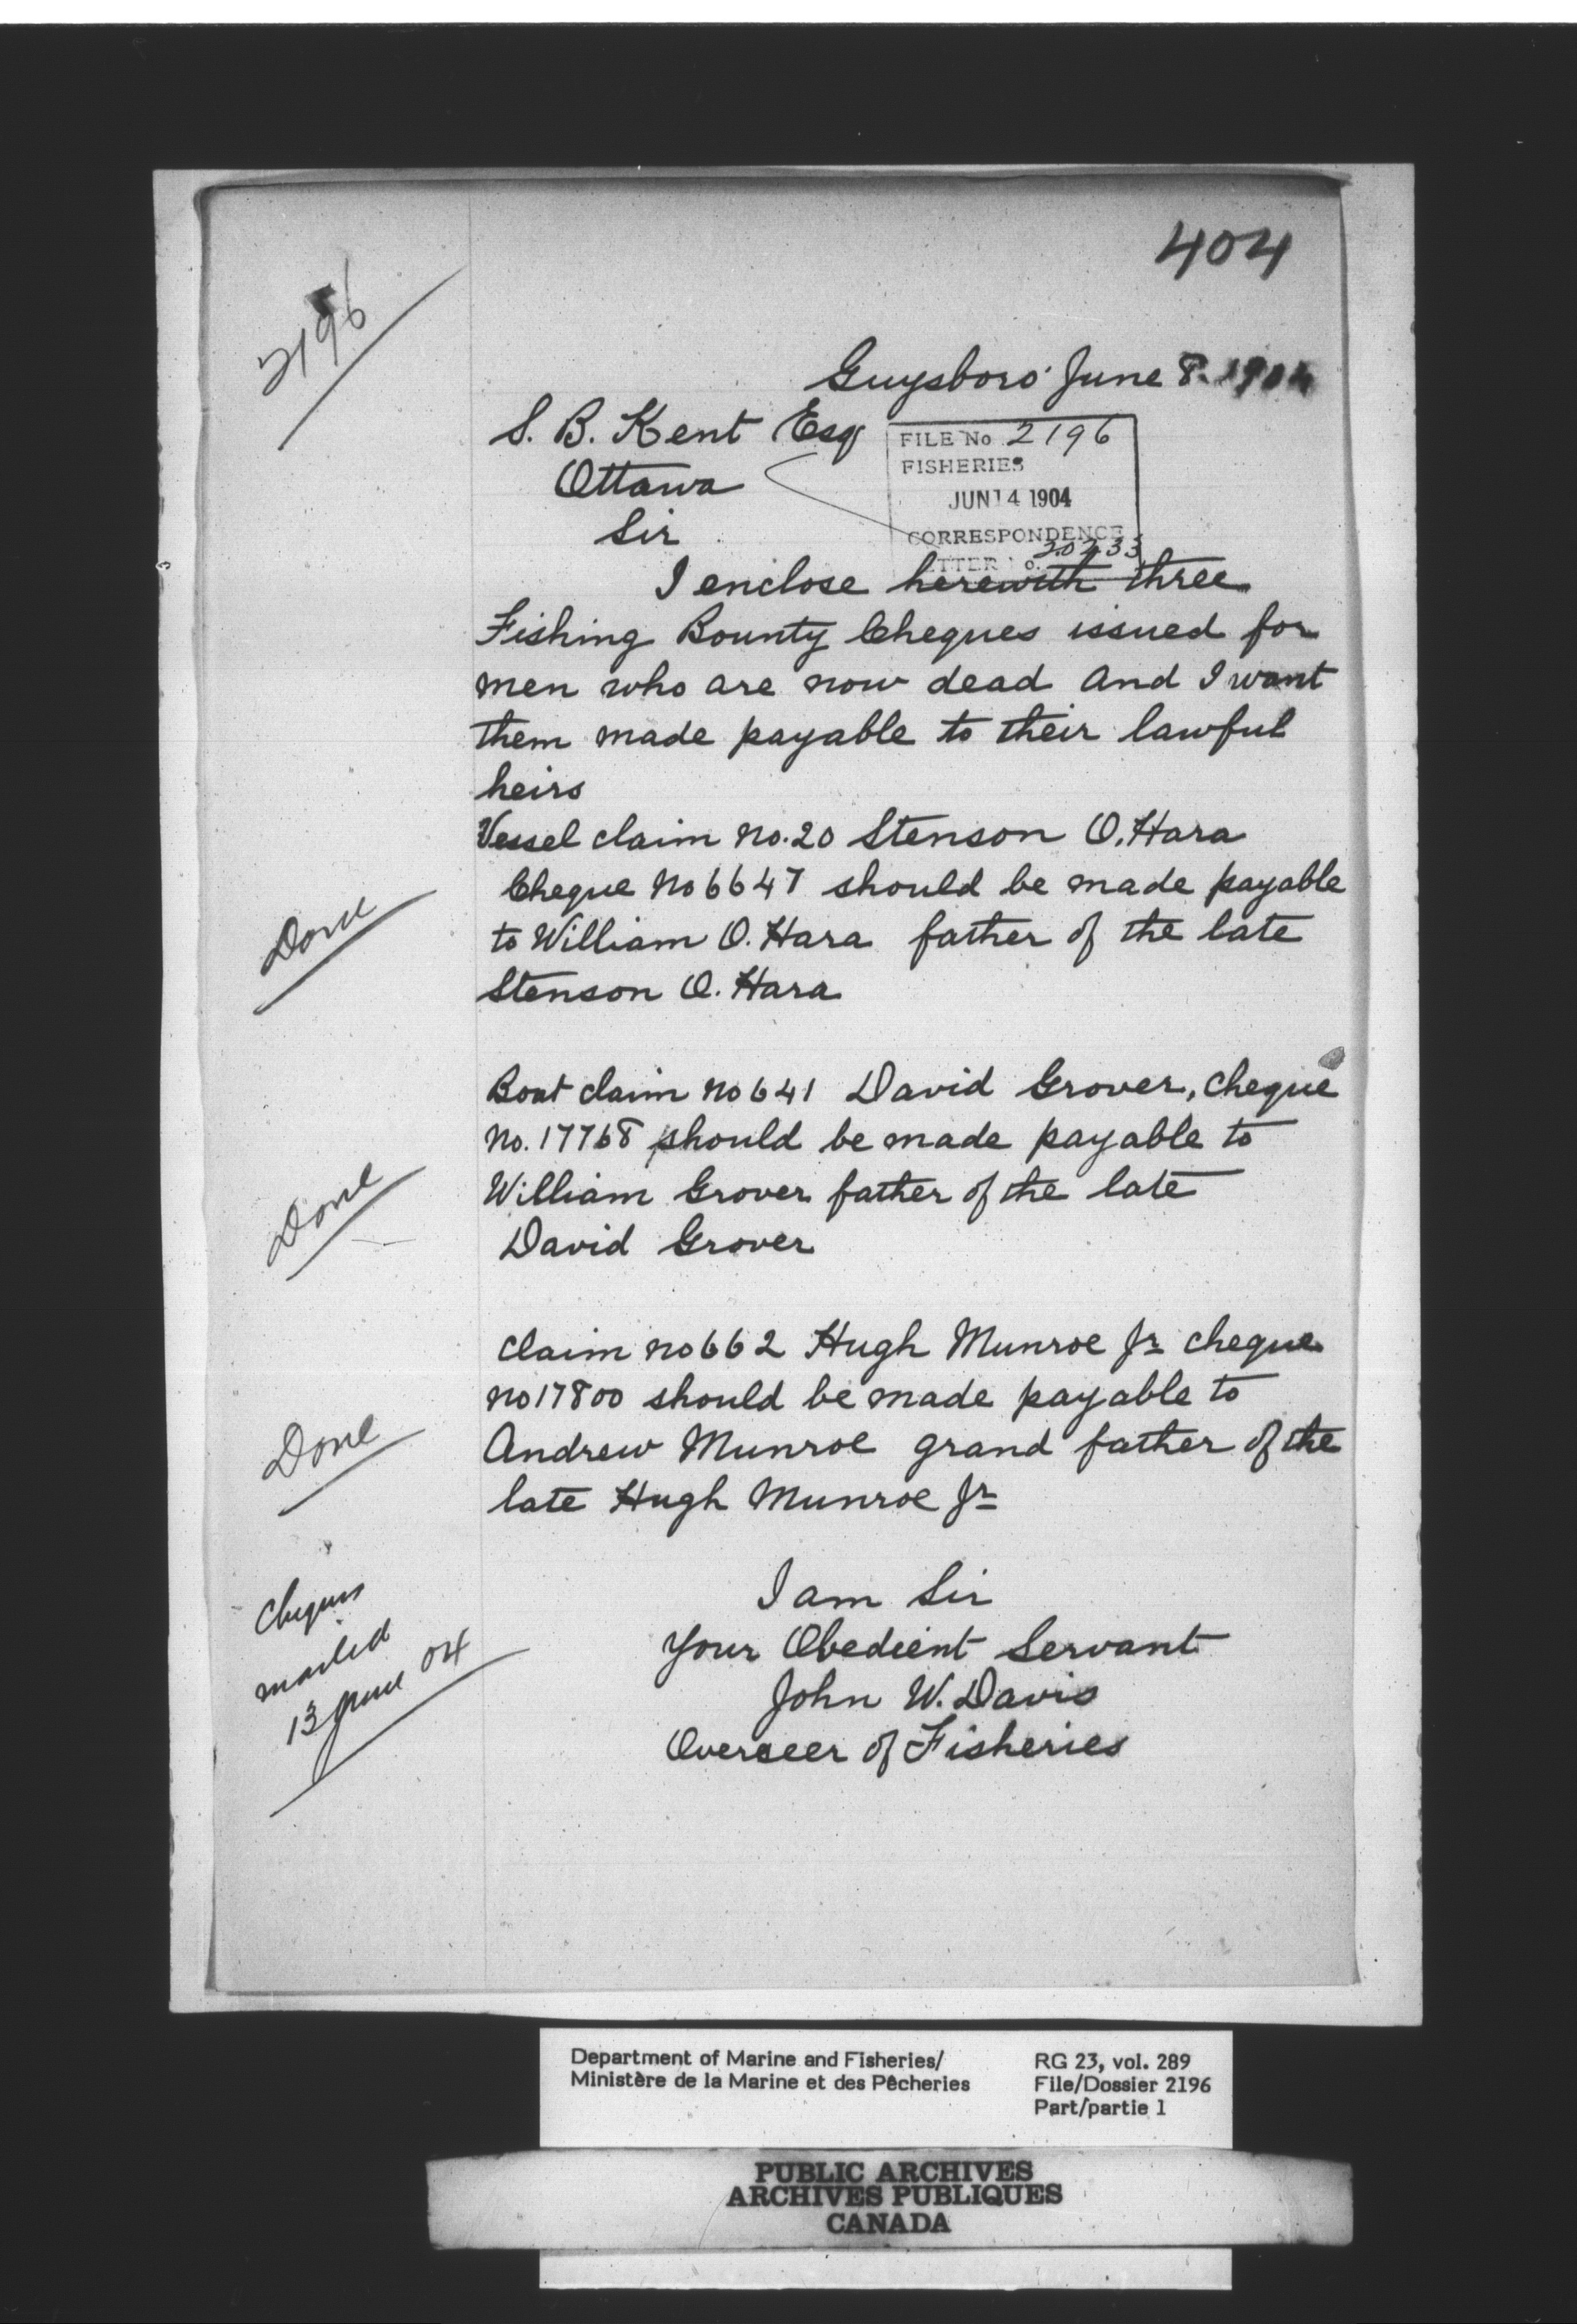 404
2196
Guysboro' June 8. 1904
S. B. Kent Esq
Ottawa
Sir
FILE No 2196
FISHERIES
JUN 14 1904
CORRESPONDENCE
LETTER No. 20233
I enclose herewith three
Fishing Bounty Cheques issued for
men who are now dead and I want
them made payable to their lawful
heirs
Vessel claim No. 20 Stenson O. Hara
Cheque No 6647 should be made payable
to William O. Hara father of the late
Stenson O. Hara
Done
Boat claim No 641 David Grover, cheque
No. 17768 should be made payable to
William Grover father of the late
David Grover
Done
Claim No 662 Hugh Munroe Jr cheque
No 17800 should be made payable to
Andrew Munroe grand father of the
late Hugh Munroe Jr
Done
I am Sir
Your Obedient Servant
John W. Davis
Overseer of Fisheries
Cheques
mailed
13 June 04
Department of Marine and Fisheries/
Ministère de la Marine et des Pêcheries
RG 23, vol. 289
File/Dossier 2196
Part/partie 1
PUBLIC ARCHIVES
ARCHIVES PUBLIQUES
CANADA